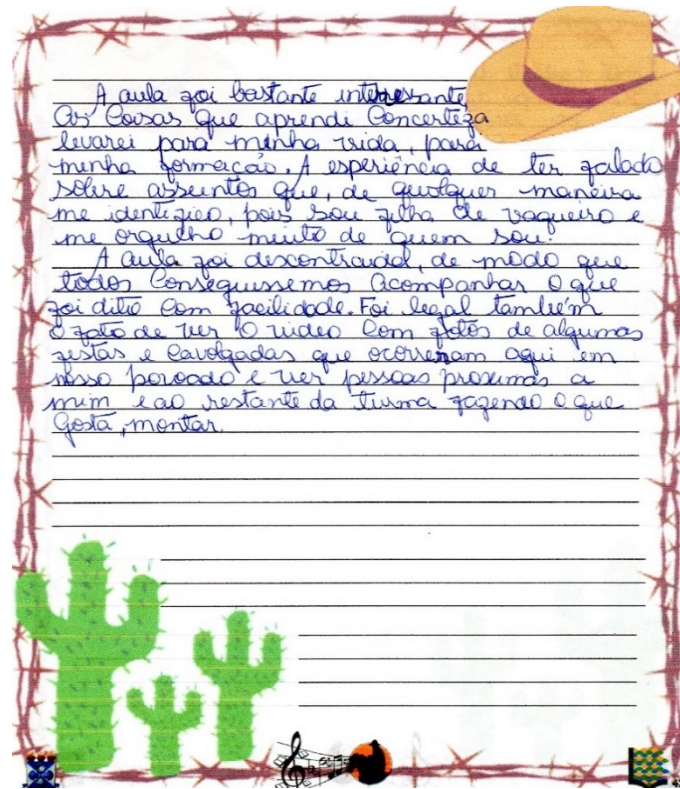 A aula foi bastante interessante,
As Coisas que aprendi Concerteza
levarei para minha vida, para
minha formação. A esperiência de ter falado
sobre assuntos que, de qualquer maneira
me identifico, pois sou filha de vaqueiro e
me orgulho muito de quem sou.
A aula foi descontraida, de modo que
todos Conseguissemos acompanhar o que
foi dito com facilidade. Foi legal também
o fato de ver o video com fotos de algumas
festas e cavalgadas que ocorreram aqui em
nosso povoado e ver pessoas proximas a
mim e ao restante da turma fazendo o que
Gosta, montar.